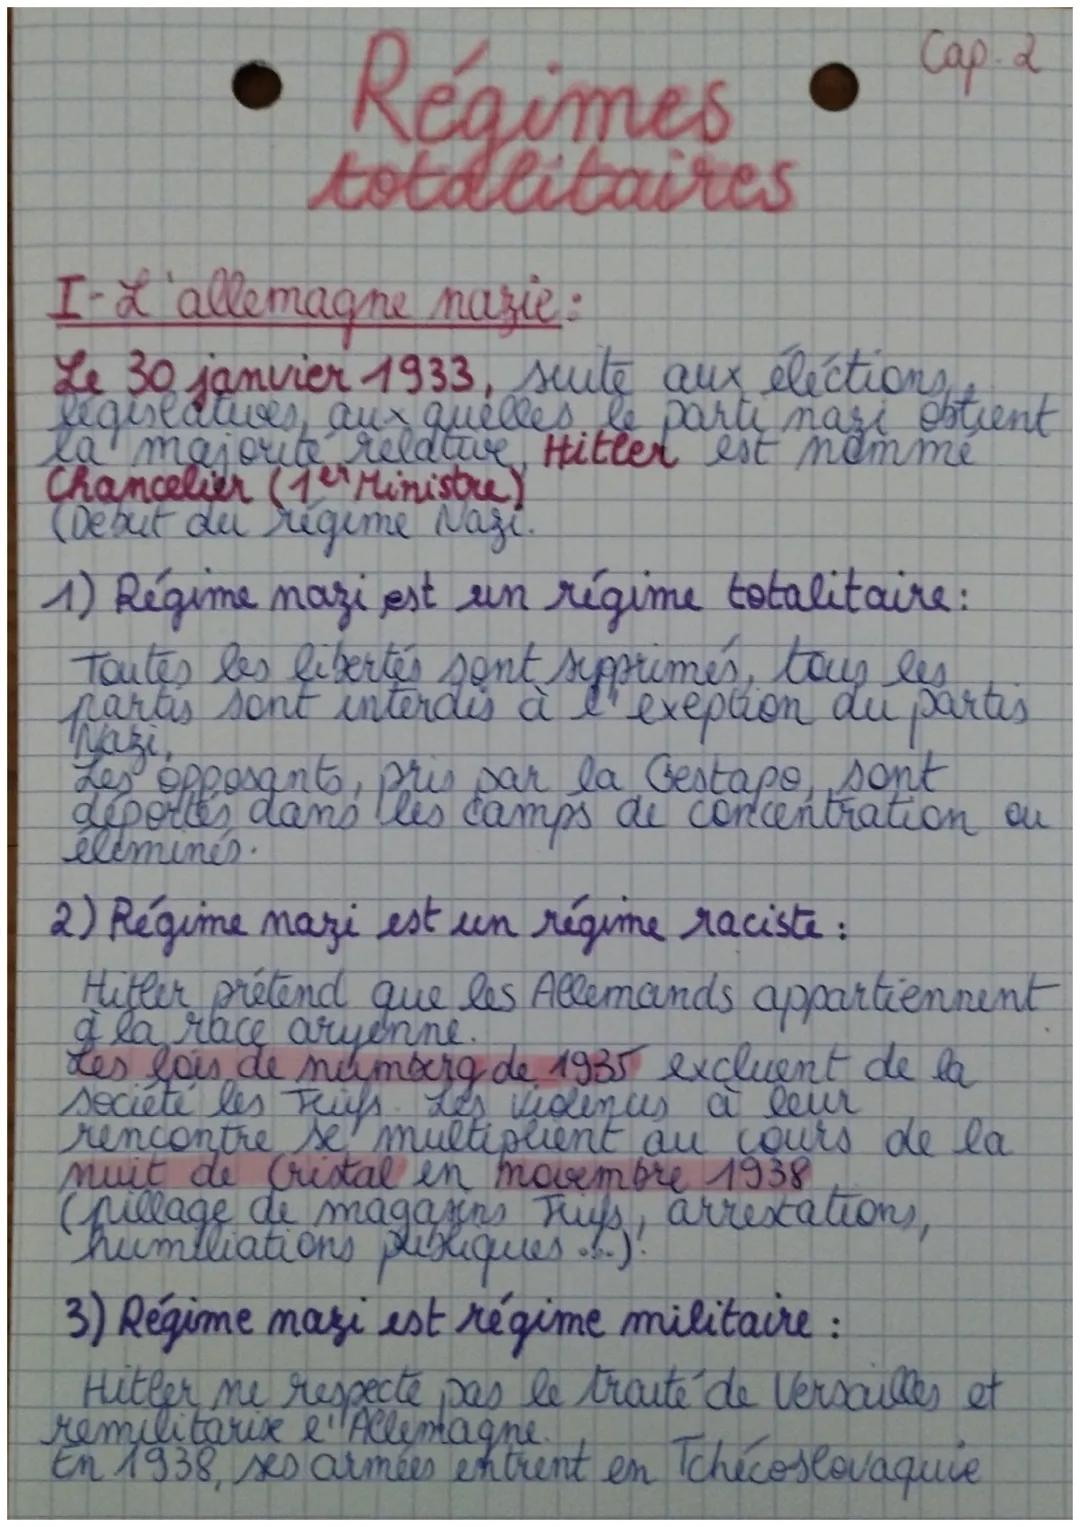 Cap. 2
Régimes
totalitaires
I-L'allemagne nazie :
Le 30 janvier 1933, suite aux éléctions
législatives, aux quelles le parti nazi obtient
la majorité relative, Hitler est nommé
Chancelier (1er Ministre)
(Début du régime Nazi.
1) Régime nazi est un régime totalitaire :
Toutes les libertés sont supprimés, tous les
partis sont interdis à l'exeption du partis
Nazi.
Les opposants, pris par la Gestapo, sont
déportés dans les camps de concentration ou
éleminés.
2) Régime nazi est un régime raciste :
Hitler prétend que les Allemands appartiennent
à la race aryenne.
Les lois de numberg de 1935 excluent de la
société les Juifs. Les violences à leur
rencontre se multiplient au cours de la
nuit de Cristal en novembre 1938
(pillage de magasins Juifs, arrestations,
humiliations publiques ...).
3) Régime nazi est régime militaire :
Hitler ne respecte pas le traité de Versailles et
remilitarise l'Allemagne.
En 1938, ses armées entrent en Tchécoslovaquie